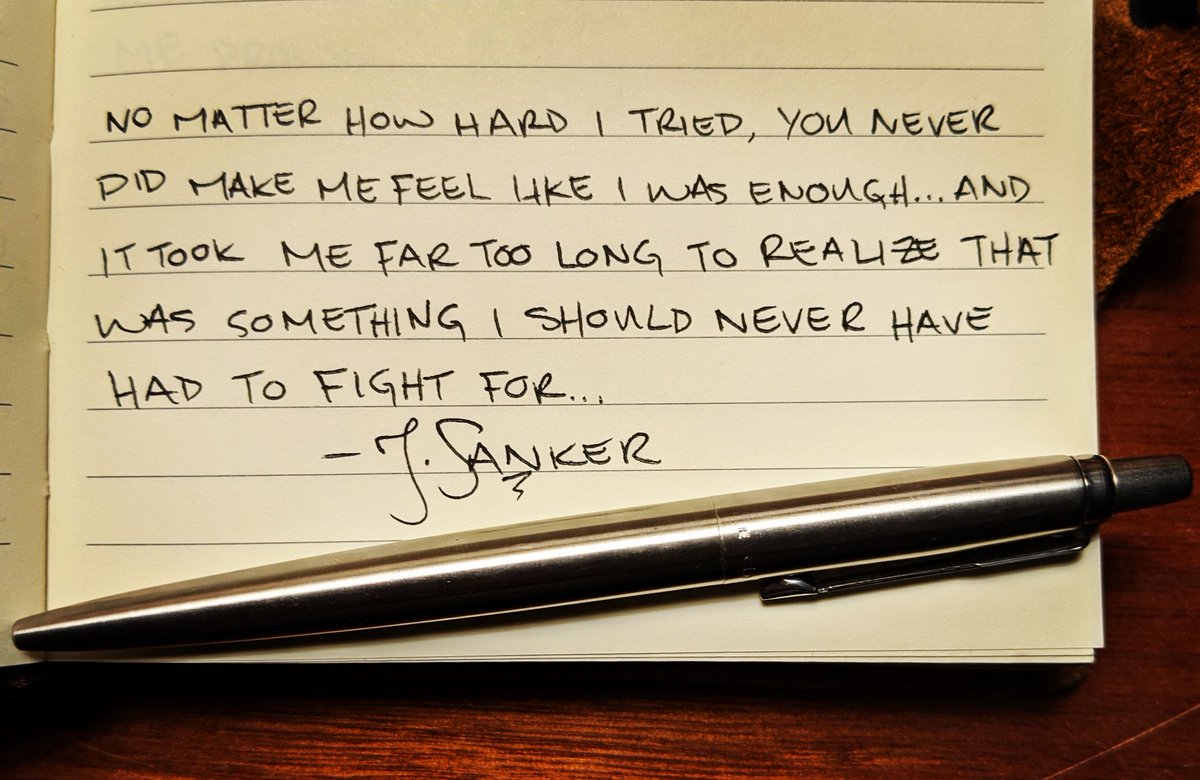 NO MATTER HOW HARD I TRIED, YOU NEVER
DID MAKE ME FEEL LIKE I WAS ENOUGH... AND
IT TOOK ME FAR TOO LONG TO REALIZE THAT
WAS SOMETHING I SHOULD NEVER HAVE
HAD TO FIGHT FOR...
- J. SANKER